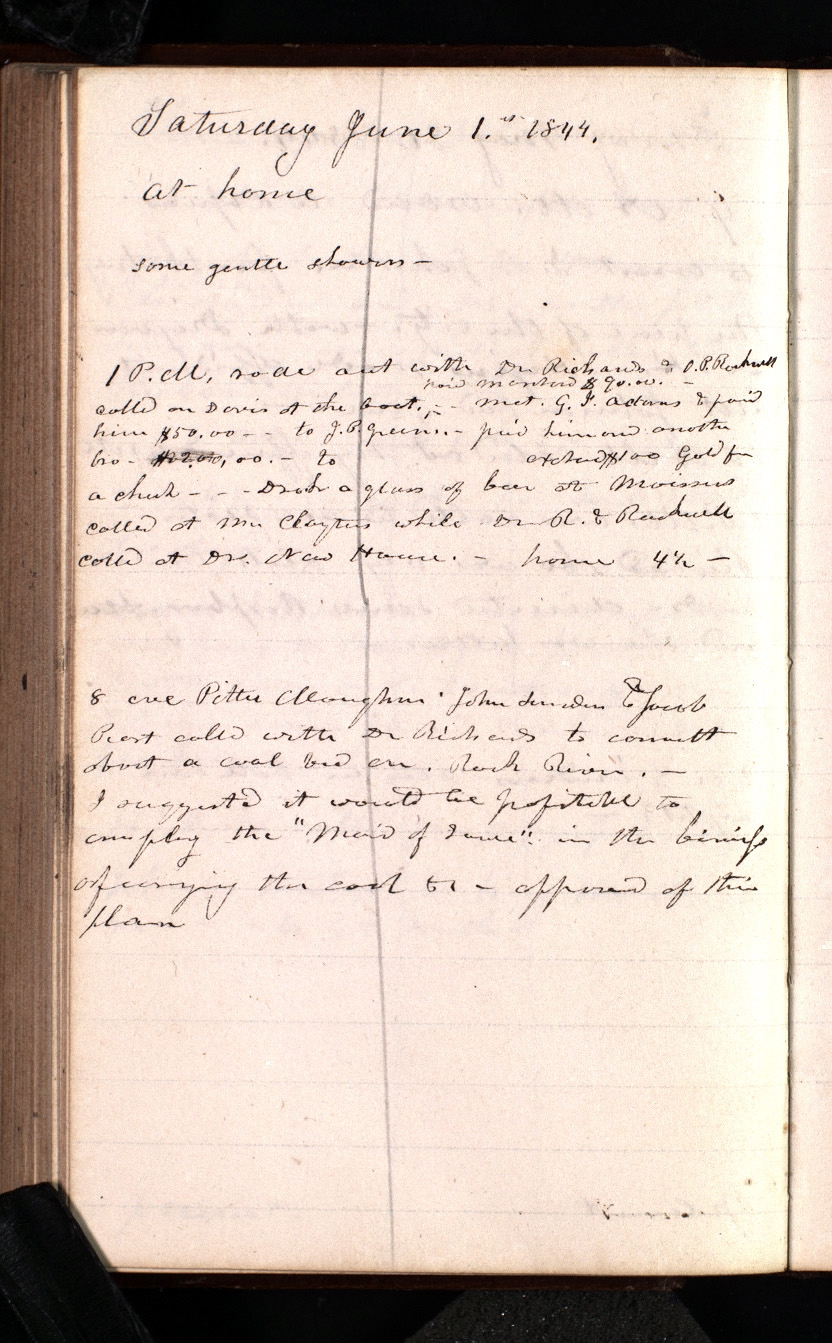 Saturday June 1.st 1844.
at home
some gentle showers—
1 P.M, rode out with Dr Richards & O.P. Rockwell
paid $90.00. —
called on Davis at the boat. — met. G. J. Adams & paid
him $50,00 — to J.P. Green. — pd him and another
bro- $200,00. — to exchd $100 Gold for
a check - - - Drank a glass of beer at Moissers
called at Mr Claytons while Dr R. & Rockwell
called at Drs. New House. — home 4½ —
8 eve Peter John & Jacob
Peart called with Dr Richards to consult
about a coal bed on. Rock River. —
I suggested it would be profitable to
employ the "Maid of Iowa". in the business
of carrying the coal &c — approved of this
plan